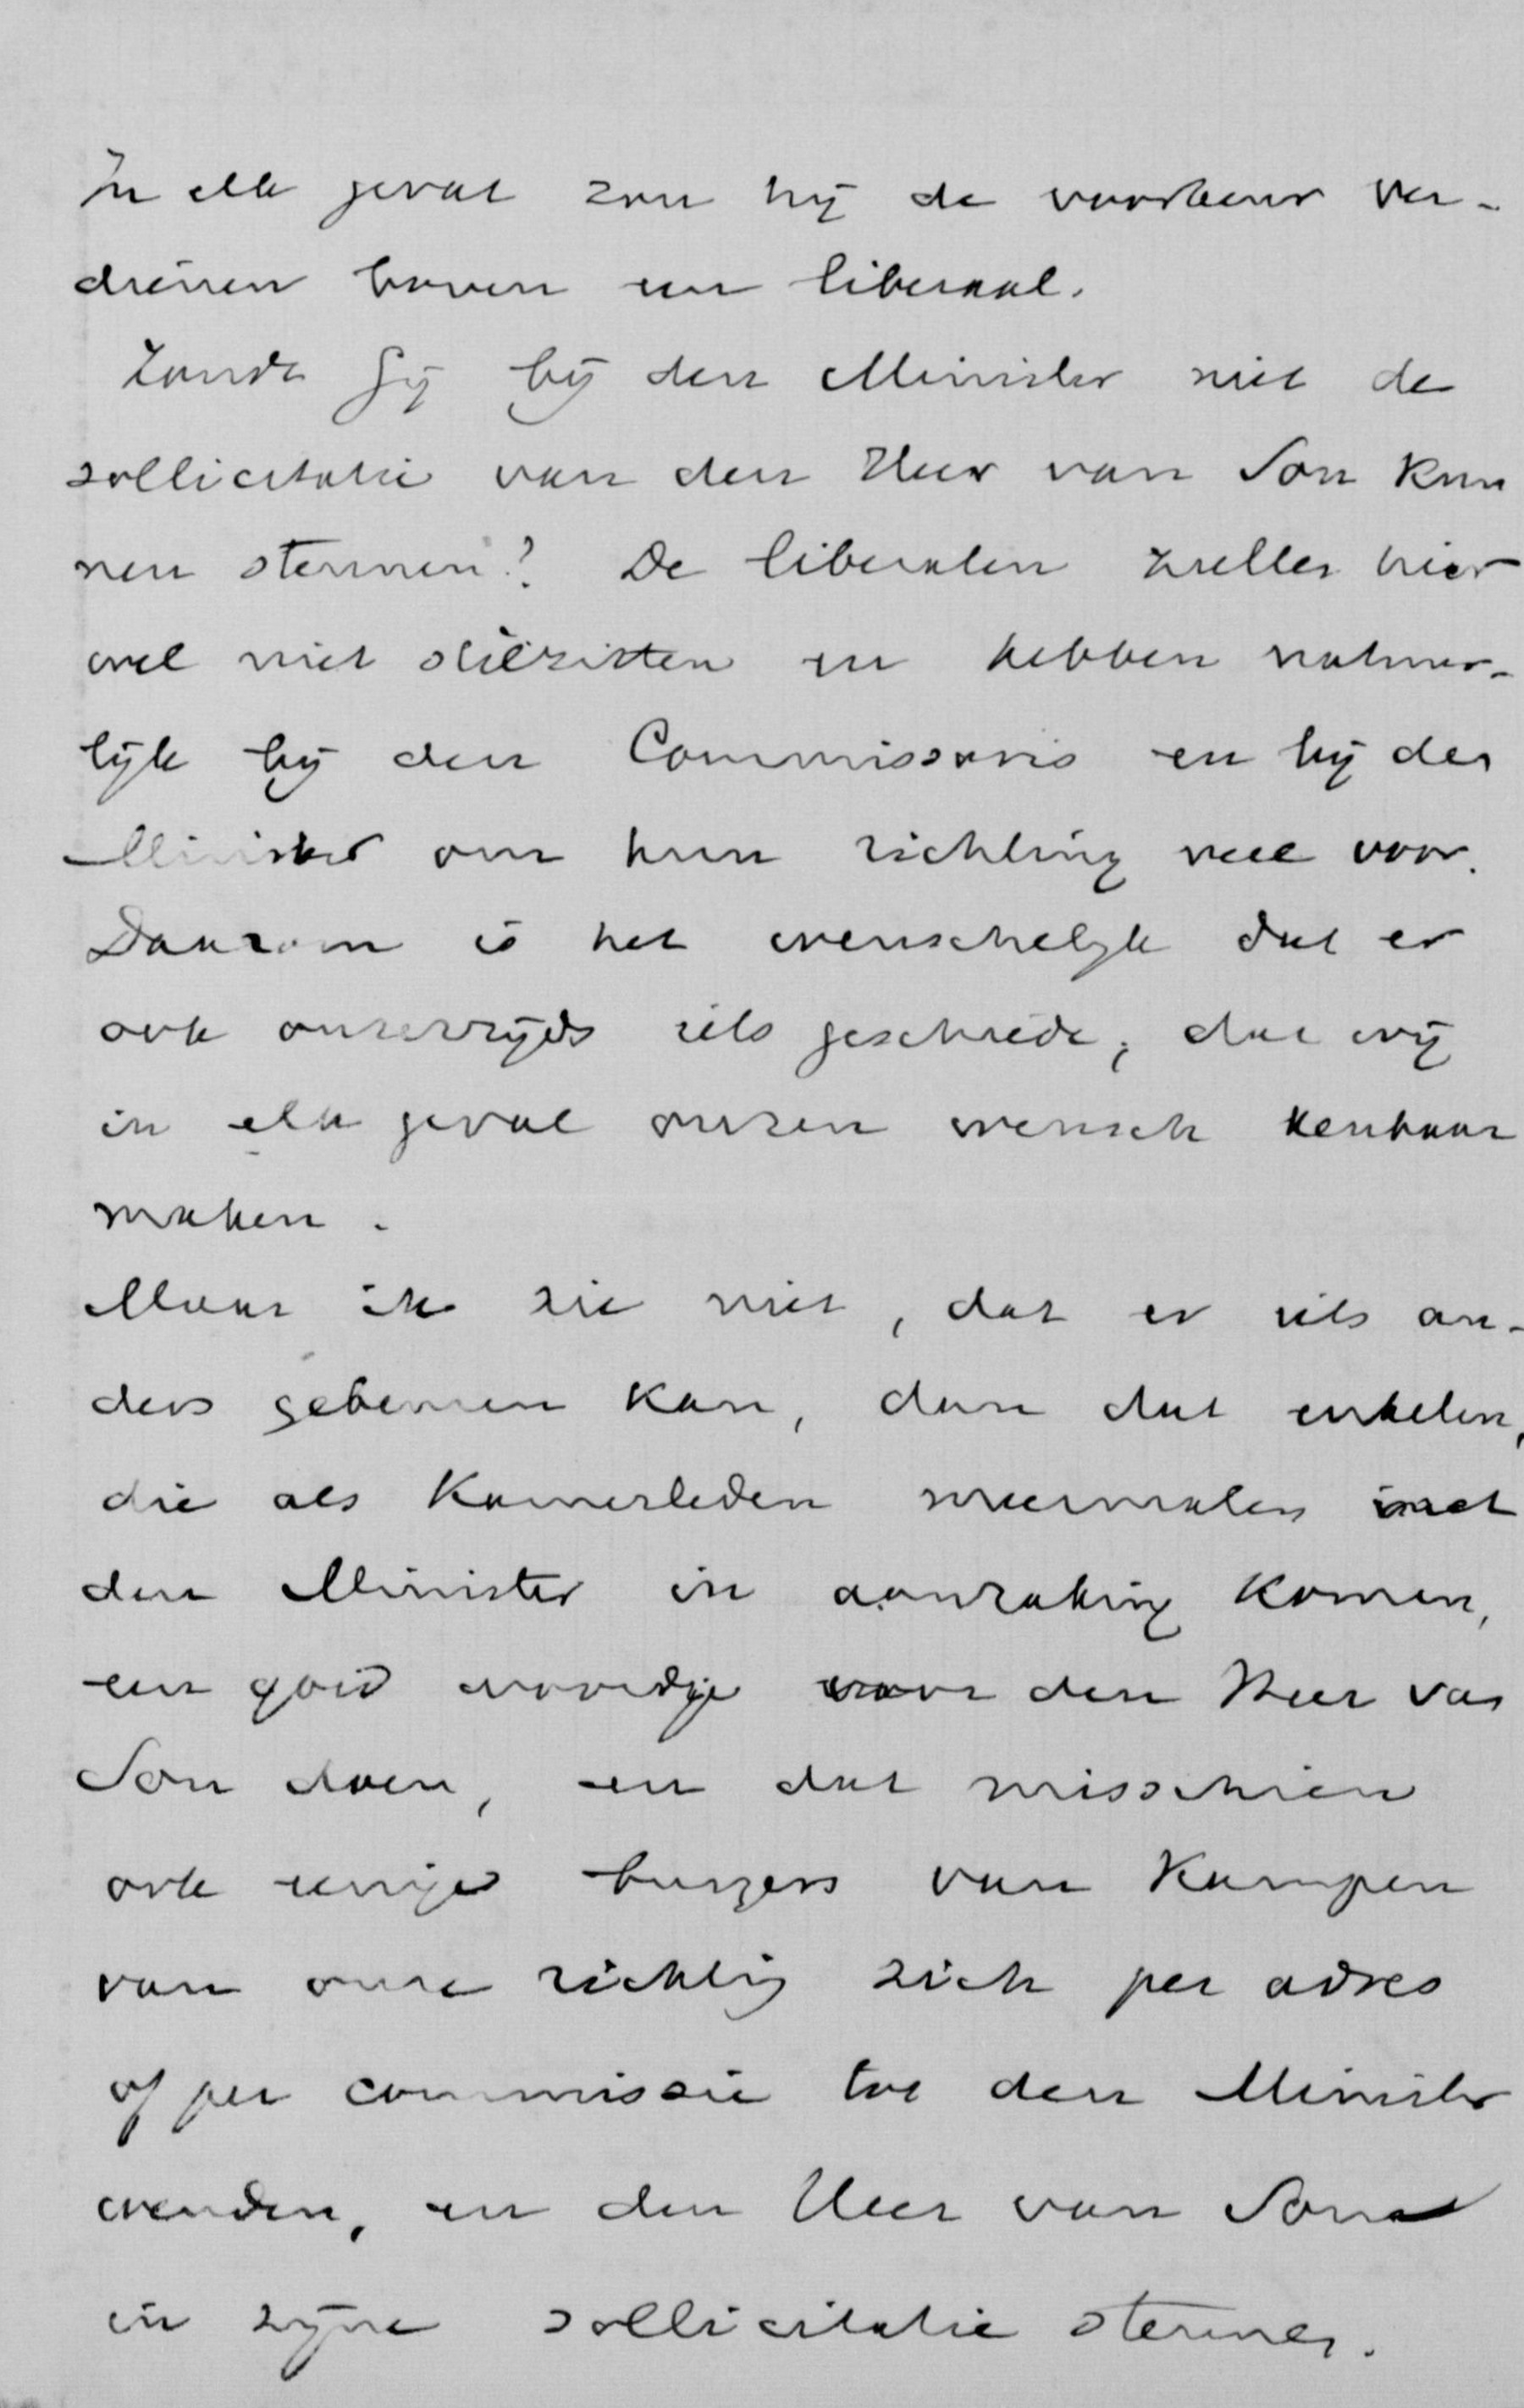 In elk geval zou hij de voorkeur ver-
dienen boven een liberaal.
Zoudt Gij bij den Minister niet de
sollicitatie van den Heer van Son kun
nen steunen? De liberalen zullen hier
wel niet stilzitten en hebben natuur-
lijk bij den Commissaris en bij den
Minister om hun richting veel voor.
Daarom is het wenschelijk dat er
ook onzerzijds iets geschiede; dat wij
in elk geval onzen wensch kenbaar
maken.
Maar ik zie niet, dat er iets an-
ders gebeuren kan, dan dat enkelen,
die als Kamerleden meermalen met
den Minister in aanraking komen,
een goed woordje voor den Heer van
Son doen, en dat misschien
ook eenige burgers van Kampen
van onze richting zich per adres
of per commissie tot den Minister
wenden, en den Heer van Son
in zijne sollicitatie steunen.